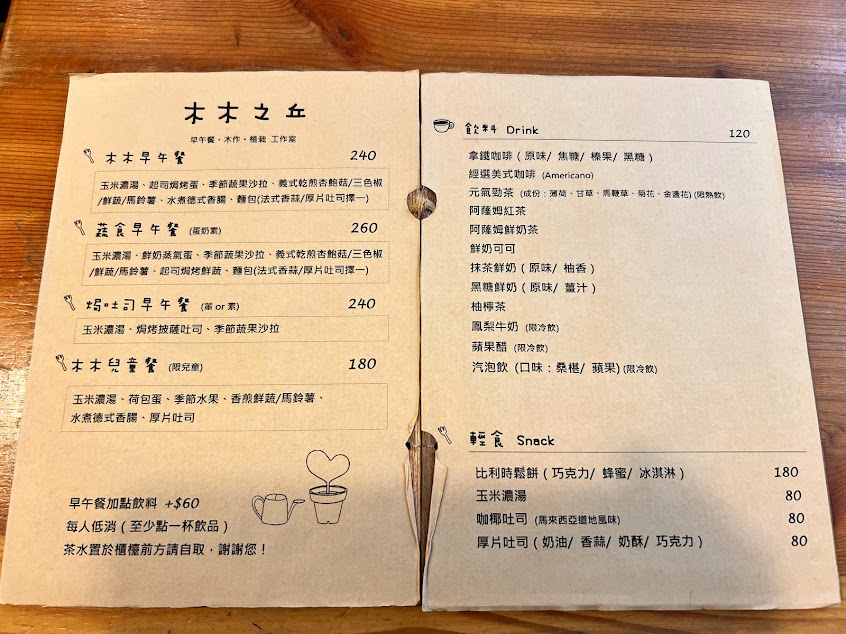 木木之丘
早午餐、木作、植栽 工作室
木木早午餐 240
玉米濃湯、起司焗烤蛋、季節蔬果沙拉、義式乾煎杏鮑菇/三色椒
/鮮蔬/馬鈴薯、水煮德式香腸、麵包(法式香蒜/厚片吐司擇一)
蔬食早午餐 (蛋奶素) 260
玉米濃湯、鮮奶蒸氣蛋、季節蔬果沙拉、義式乾煎杏鮑菇/三色椒
/鮮蔬/馬鈴薯、起司焗烤鮮蔬、麵包(法式香蒜/厚片吐司擇一)
焗吐司早午餐 (葷 or 素) 240
玉米濃湯、焗烤披薩吐司、季節蔬果沙拉
木木兒童餐 (限兒童) 180
玉米濃湯、荷包蛋、季節水果、香煎鮮蔬/馬鈴薯、
水煮德式香腸、厚片吐司
早午餐加點飲料 +$60
每人低消(至少點一杯飲品)
茶水置於櫃檯前方請自取，謝謝您！
飲料 Drink 120
拿鐵咖啡(原味/ 焦糖/ 榛果/ 黑糖)
經選美式咖啡 (Americano)
元氣勁茶 (成份：薄荷、甘草、馬鞭草、菊花、金盞花) (限熱飲)
阿薩姆紅茶
阿薩姆鮮奶茶
鮮奶可可
抹茶鮮奶(原味/ 柚香)
黑糖鮮奶(原味/ 薑汁)
柚檸茶
鳳梨牛奶 (限冷飲)
蘋果醋 (限冷飲)
汽泡飲 (口味：桑椹/ 蘋果) (限冷飲)
輕食 Snack
比利時鬆餅(巧克力/ 蜂蜜/ 冰淇淋) 180
玉米濃湯 80
咖椰吐司 (馬來西亞道地風味) 80
厚片吐司(奶油/ 香蒜/ 奶酥/ 巧克力) 80